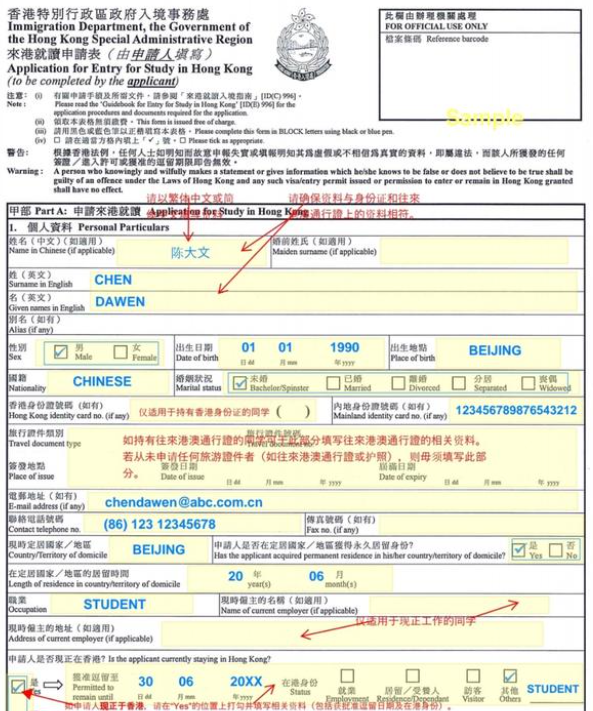 香港特別行政區政府入境事務處
Immigration Department, the Government of
the Hong Kong Special Administrative Region
來港就讀申請表（由申請人填寫）
Application for Entry for Study in Hong Kong
(to be completed by the applicant)
此欄由辦理機關處理
FOR OFFICIAL USE ONLY
檔案條碼 Reference barcode
Sample
注意： (i) 有關申請手續及所需文件，請參閱「來港就讀入境指南」[ID(C) 996]。
Note : Please read the 'Guidebook for Entry for Study in Hong Kong' [ID(E) 996] for the
application procedures and documents required for the application.
(ii) 領取本表格無須繳費。This form is issued free of charge.
(iii) 請用黑色或藍色筆以正楷填寫本表格。Please complete this form in BLOCK letters using black or blue pen.
(iv) □ 請在適當方格內填上「✓」號。□ Please tick as appropriate.
警告： 根據香港法例，任何人士如明知而故意申報失實或填報明知其為虛假或不相信為真實的資料，即屬違法，而該人所獲發的任何
簽證／進入許可或獲准的逗留期限即告無效。
Warning : A person who knowingly and wilfully makes a statement or gives information which he/she knows to be false or does not believe to be true shall be
guilty of an offence under the Laws of Hong Kong and any such visa/entry permit issued or permission to enter or remain in Hong Kong granted
shall have no effect.
请以繁体中文或简
请确保资料与身份证和往來
港澳通行證上的资料相符。
甲部 Part A: 申請來港就讀 Application for Study in Hong Kong
1. 個人資料 Personal Particulars
姓名（中文）（如適用）
Name in Chinese (if applicable)
陈大文
婚前姓氏（如適用）
Maiden surname (if applicable)
姓（英文）
Surname in English
CHEN
名（英文）
Given names in English
DAWEN
別名（如有）
Alias (if any)
性別
Sex
✓ 男
Male
女
Female
出生日期
Date of birth
01 01 1990
日 dd 月 mm 年 yyyy
出生地點
Place of birth
BEIJING
國籍
Nationality
CHINESE
婚姻狀況
Marital status
✓ 未婚
Bachelor/Spinster
已婚
Married
離婚
Divorced
分居
Separated
喪偶
Widowed
香港身份證號碼（如有）
Hong Kong identity card no. (if any)
仅适用于持有香港身份证的同学 ( )
內地身份證號碼（如有）
Mainland identity card no. (if any)
123456789876543212
旅行證件類別
Travel document type
旅行證件號碼
如持有往來港澳通行證的同学可于此部分填写往來港澳通行證的相关资料。
若从未申请任何旅游證件者（如往來港澳通行證或护照），则毋须填写此部
分。
簽發地點
Place of issue
簽發日期
Date of issue
日 dd 月 mm 年 yyyy
屆滿日期
Date of expiry
日 dd 月 mm 年 yyyy
電郵地址（如有）
E-mail address (if any)
chendawen@abc.com.cn
聯絡電話號碼
Contact telephone no.
(86) 123 12345678
傳真號碼（如有）
Fax no. (if any)
現時定居國家／地區
Country/Territory of domicile
BEIJING
申請人是否在定居國家／地區獲得永久居留身份?
Has the applicant acquired permanent residence in his/her country/territory of domicile?
✓ 是
Yes
否
No
在定居國家／地區的居留時間
Length of residence in country/territory of domicile
20 年
year(s)
06 月
month(s)
職業
Occupation
STUDENT
現時僱主的名稱（如適用）
Name of current employer (if applicable)
仅适用于现正工作的同学
現時僱主的地址（如適用）
Address of current employer (if applicable)
申請人是否現正在香港? Is the applicant currently staying in Hong Kong?
✓ 是
Yes
獲准逗留至
Permitted to
remain until
30 06 20XX
在港身份
Status
就業
Employment
居留／受養人
Residence/Dependant
訪客
Visitor
✓ 其他
Others
STUDENT
如申请人现正于香港，请在"Yes"的位置上打勾并填写相关资料（包括获批准逗留日期及在港身份）。